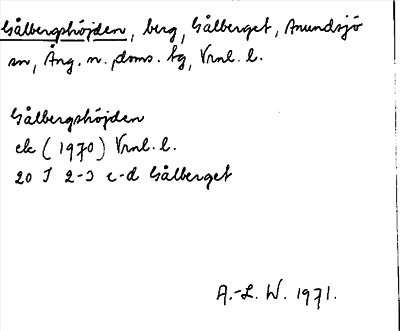 Gålbergshöjden, berg, Gålberget, Anundsjö
sn, Ång. n. doms. tg, Vrnl. l.
Gålbergshöjden
ek (1970) Vrnl. l.
20 J 2-3 c-d Gålberget
A.-L. W. 1971.